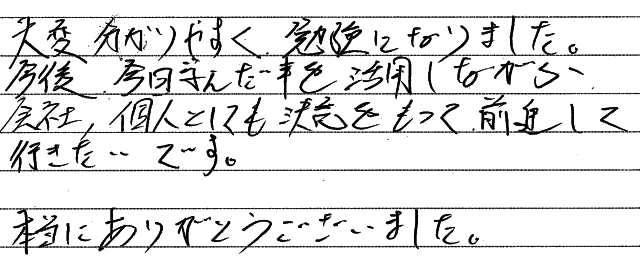 大変分かりやすく、勉強になりました。
今後、今日学んだ事を活用しながら、
会社、個人としても決意をもって前進して
行きたいです。
本当にありがとうございました。